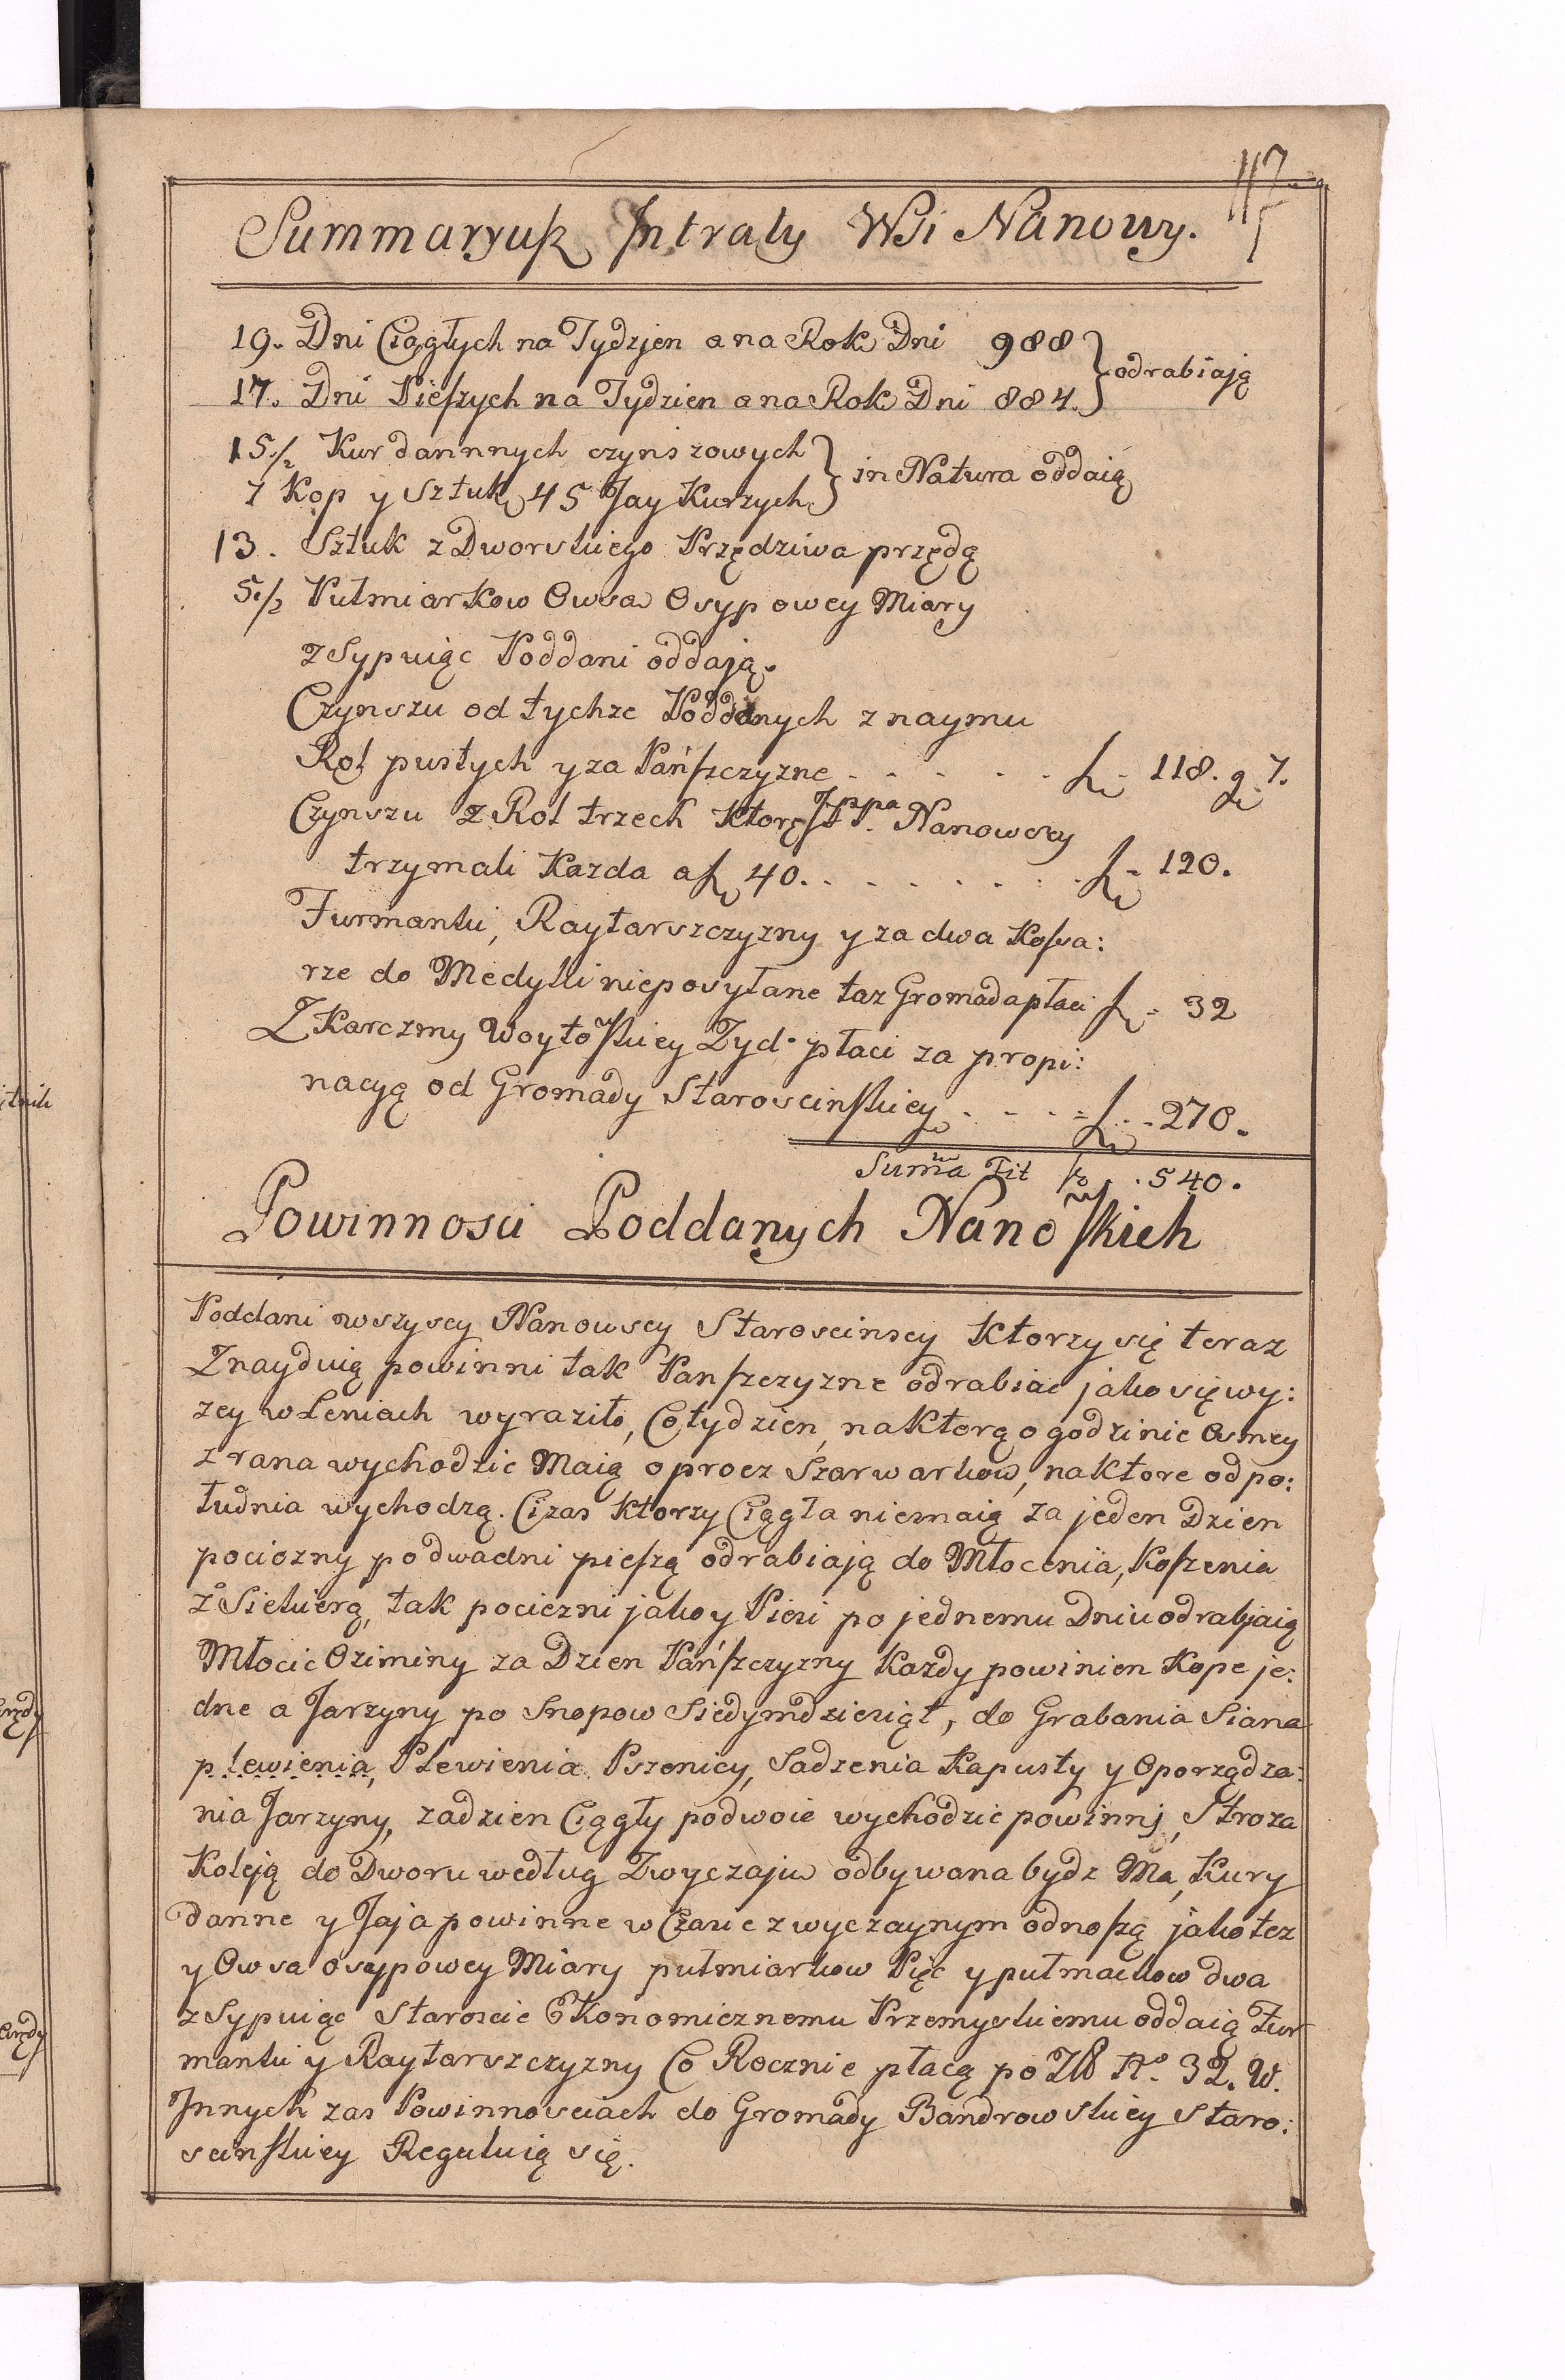 117
Summaryusz Intraty Wsi Nanowy.
19. Dni Ciągłych na Tydzien a na Rok Dni 988 } odrabiają
17. Dni Pieszych na Tydzien a na Rok Dni 884.
15 1/2 Kur dannnych czynszowych } in Natura oddaią
7 Kop y Sztuk 45 Jay Kurzych
13. Sztuk z Dworskiego Przędziwa przędą
5 1/2 Pułmiarkow Owsa Osypowey Miary
zsypuiąc Poddani oddają.
Czynszu od tychze Poddanych z naymu
Rol pustych y za Pańszczyzne - - - - - f - 118. g 7.
Czynszu z Rol trzech ktore Jppa Nanowscy
trzymali Kazda a f 40. - - - - - - - f - 120.
Furmanki, Raytarszczyzny y za dwa Kosia:
rze do Medyki nieposyłane taz Gromada płaci f - 32
Z Karczmy Woytoskiey Zyd płaci za propi:
nacyą od Gromady Staroscinskiey - - - f - 270.
Sum̃a Fit f - 540.
Powinnosci Poddanych Nanow̃skich
Poddani wszyscy Nanowscy Staroscinscy Ktorzy się teraz
Znayduią powinni tak Panszczyzne odrabiac jako się wy:
zey w Leniach wyraziło, Co tydzien, na ktorą o godzinie Osmey
z rana wychodzic Maią oprocz Szarwarkow, na ktore od po:
łudnia wychodzą. Ci zas Ktorzy Ciągła niemaią za jeden Dzien
pociozny po dwa dni pieszą odrabiają do Młocenia, Koszenia
z Siekierą, tak pociezni jako y Piesi po jednemu Dniu odrabjaią
Młocic Oziminy za Dzien Pańszczyzny Kazdy powinien Kope je:
dne a Jarzyny po Snopow Siedymdziesiąt, do Grabania Siana
plewienia, Plewienia Pszenicy, Sadzenia Kapusty y Oporządza:
nia Jarzyny, za dzien Ciągły podwoie wychodzic powinnj, Stroza
Koleją do Dworu według Zwyczaju odbywana bydz Ma, Kury
danne y Jaja powinne w Czasie zwyczaynym odnoszą jako tez
y Owsa osypowey Miary pułmiarkow Pięc y pułmackow dwa
zsypuiąc Staroscie Ekonomicznemu Przemyskiemu oddaią Fur
manki y Raytarszczyzny Co Rocznie płacą po Zł No. 32. W.
Jnnych zas Powinnosciach do Gromady Bandrowskiey Staro:
scinskiey Reguluią się.